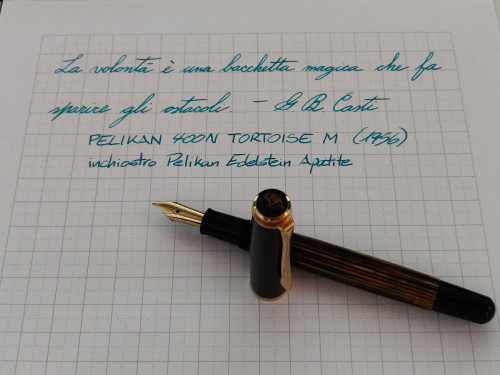 La volontà è una bacchetta magica che fa
sparire gli ostacoli. - G B. Casti
PELIKAN 400N TORTOISE M (1956)
inchiostro Pelikan Edelstein Apatite